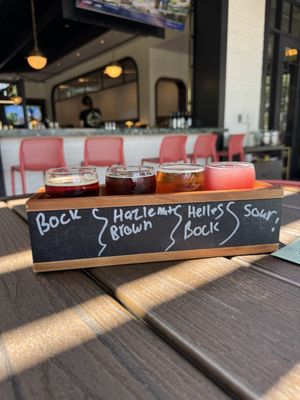 Bock Hazlenut Helles Sour,
Brown Bock